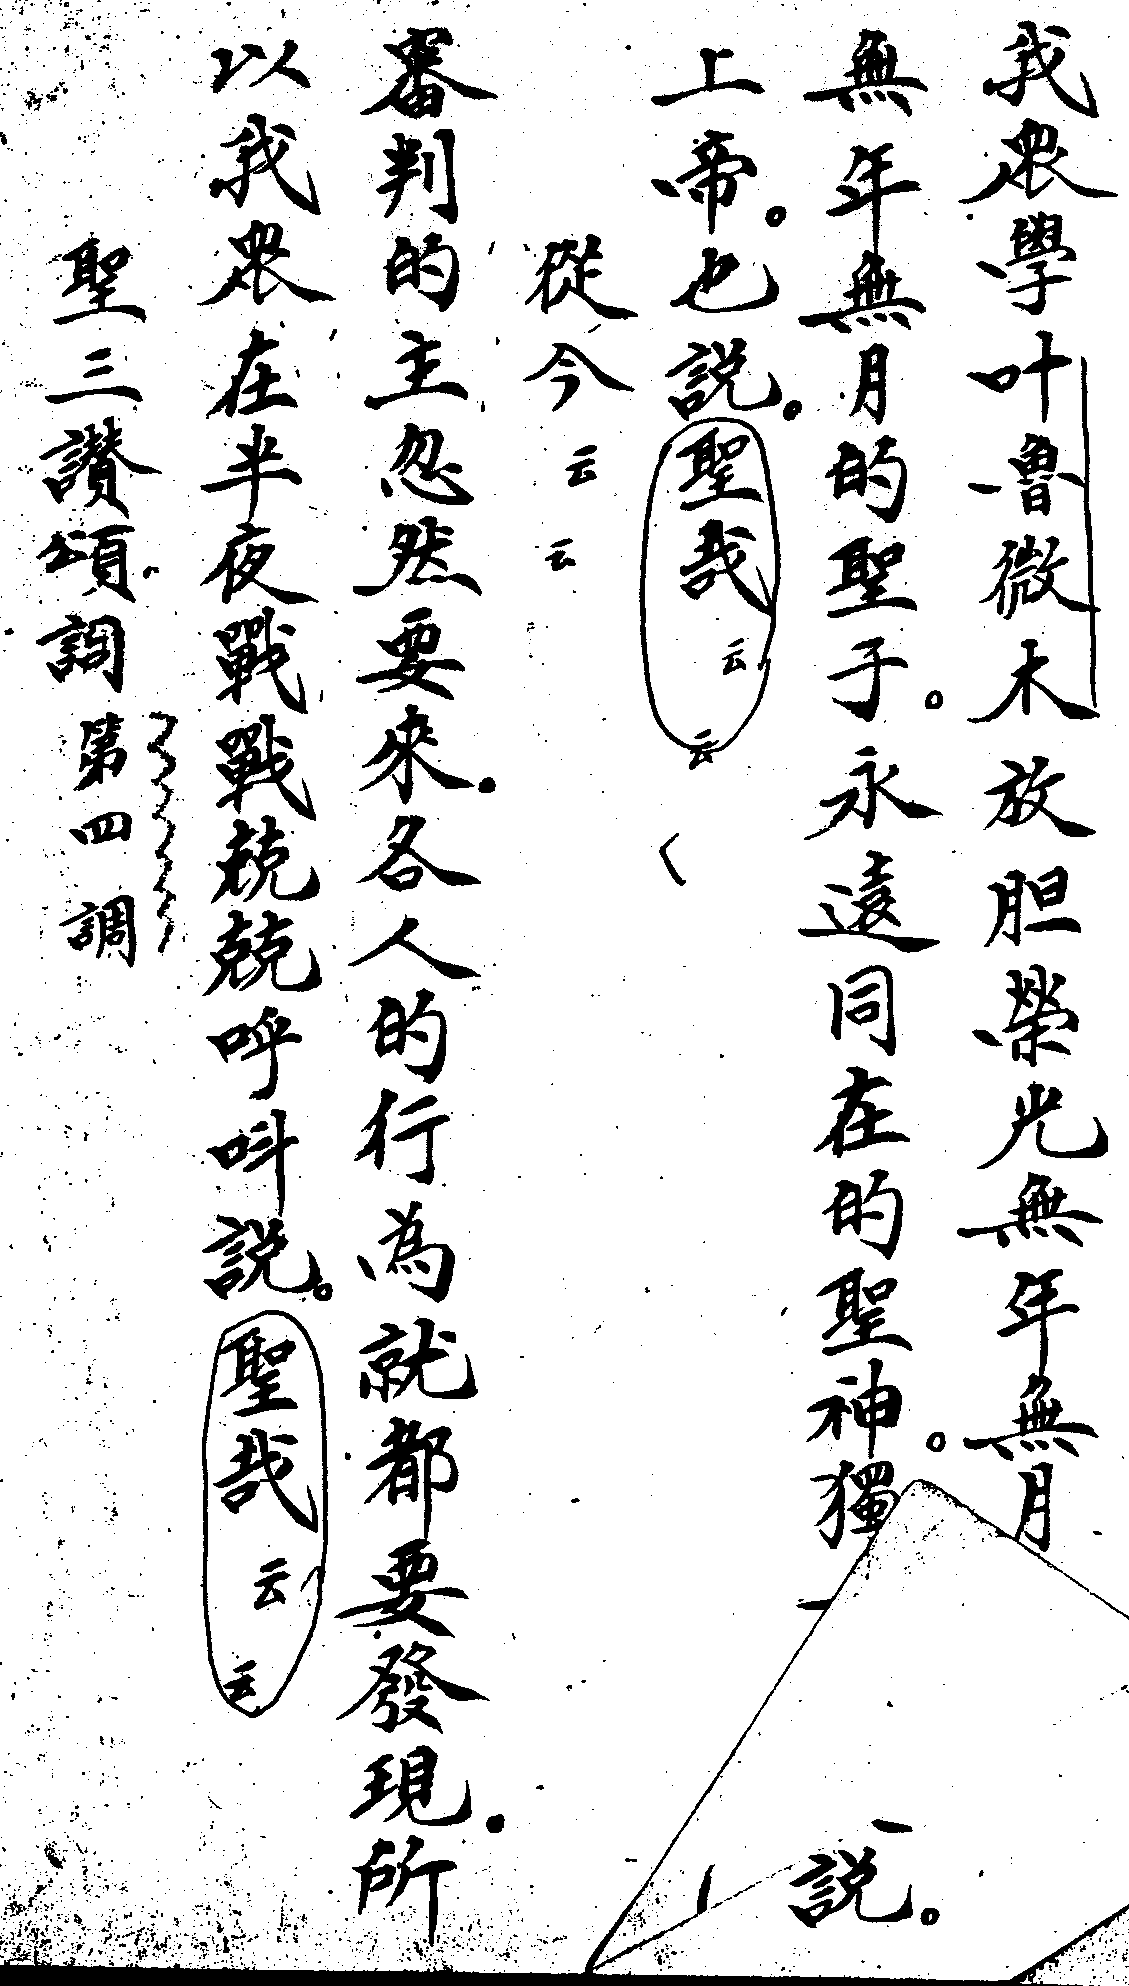 我眾學叶魯微木放胆榮光無年無月
無年無月的聖子。永遠同在的聖神。獨一
說。
上帝。也說。聖哉云云
從今云云
審判的主忽然要來。各人的行為就都要發現。所
以我眾在半夜戰戰兢兢呼呌說。聖哉云云
聖三讚頌。調第四調